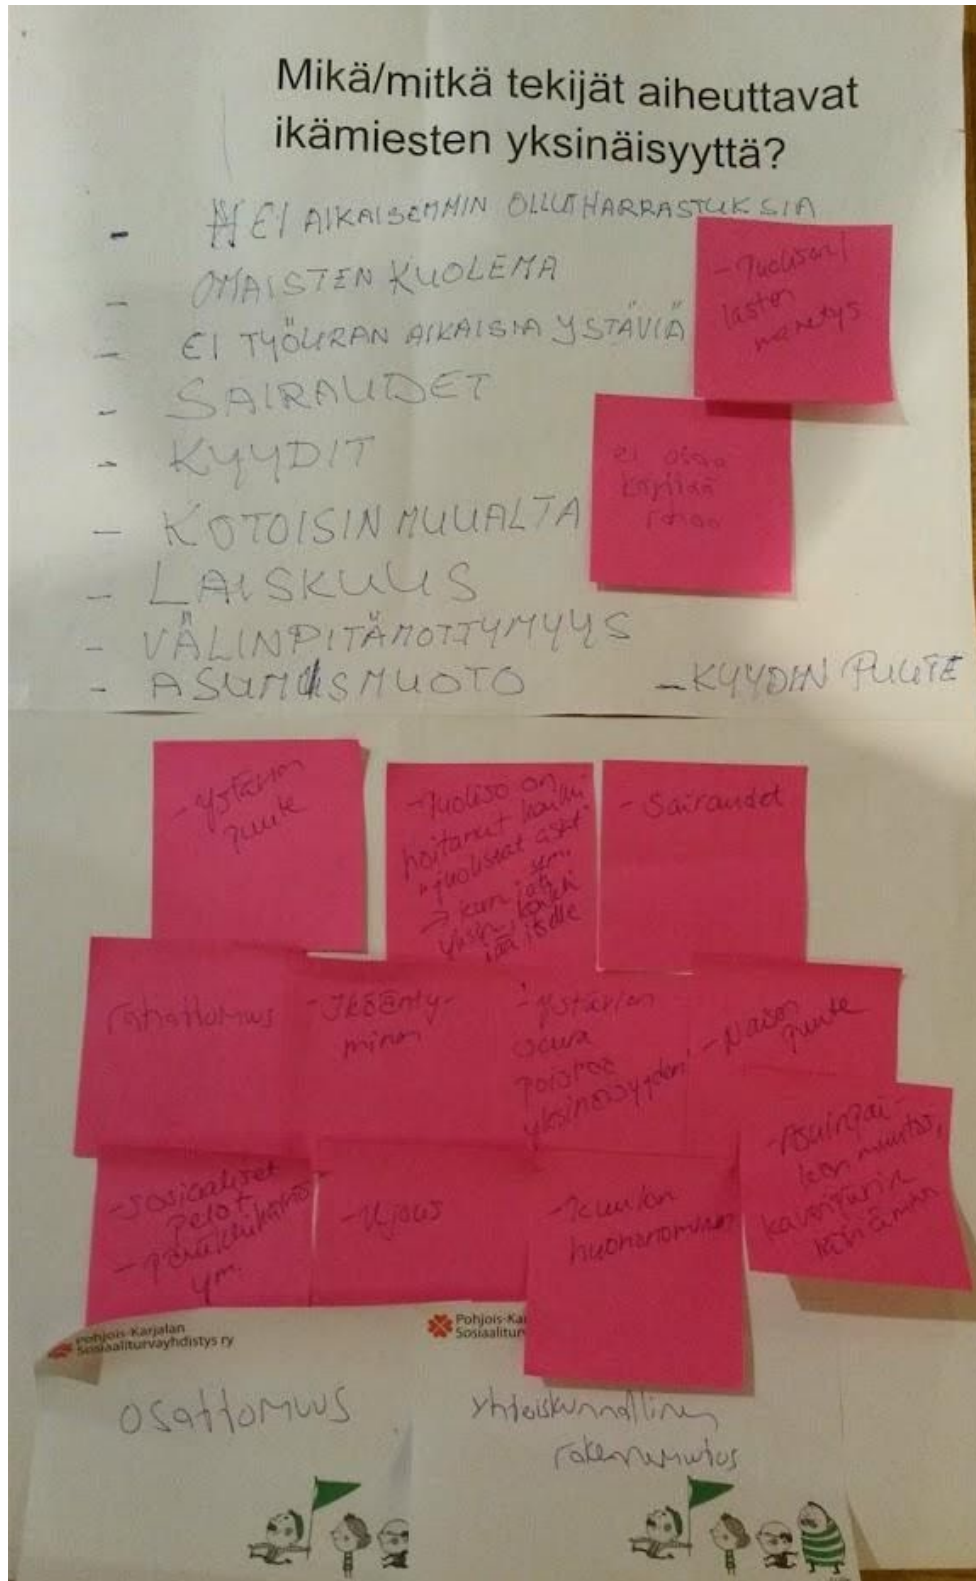 Mikä/mitkä tekijät aiheuttavat
ikämiesten yksinäisyyttä?
- EI AIKAISEMMIN OLLUT HARRASTUKSIA
- OMAISTEN KUOLEMA
- EI TYÖURAN AIKAISIA YSTÄVIÄ
- SAIRAUDET
- KYYDIT
- KOTOISIN MUUALTA
- LAISKUUS
- VÄLINPITÄMÖTTYMYYS
- ASUMUSMUOTO
- KYYDIN PUUTE
- Puolison/
lasten
menetys
ei osaa
käyttää
rahaa
- Ystävien
puute
- Puoliso on
hoitanut kaikki
"puolistat asiat"
→ kun jää
yksin, kaikki
jää itselle
- Sairaudet
rahattomuus
- Ikäänty-
minen
- Ystävien
seura
poistaa
yksinäisyyden!
- Naisen
puute
- Asuinpai-
kan muutos,
kaveripiirin
- Sosiaaliset
pelot
- paniikkihäiriö
ym.
- Ujous
- Kuulon
huononeminen
Pohjois-Karjalan
Sosiaaliturvayhdistys ry
Pohjois-Ka
Sosiaalitur
osattomuus
yhteiskunnallinen
rakennemuutos